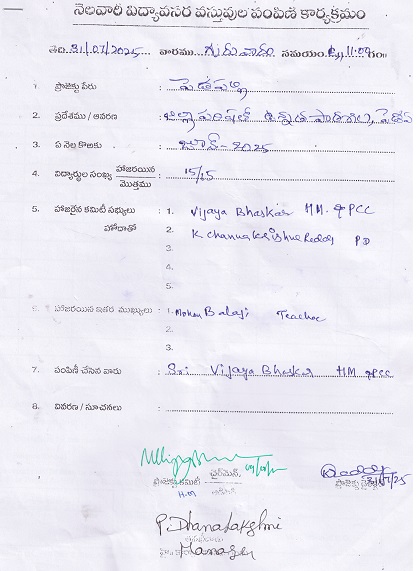 నెలవారీ విద్యావసర వస్తువుల పంపిణీ కార్యక్రమం
తేది 31/07/2025 వారము గురువారం సమయం 11:00
1. ప్రాజెక్టు పేరు :
2. ప్రదేశము / ఆవరణ : జిల్లా పరిషత్ ఉన్నత పాఠశాల,
3. ఏ నెల కొఱకు : జూన్ - 2025
4. విద్యార్థుల సంఖ్య హాజరయిన / మొత్తము : 15/15
5. హాజరైన కమిటీ సభ్యులు : 1. Vijaya Bhaskar HM. & PCC
హోదాతో 2. K Channakrishna Reddy PD
3.
4.
5.
6. హాజరయిన ఇతర ముఖ్యులు : 1. Mohan Balaji Teacher
2.
3.
7. పంపిణీ చేసిన వారు : Sri Vijaya Bhaskar HM & PCC
8. వివరణ / సూచనలు :
ఛైర్మెన్,
ప్రాజెక్టు కమిటీ
H.M
31/7/25
P. Dhanalakshmi
Manager